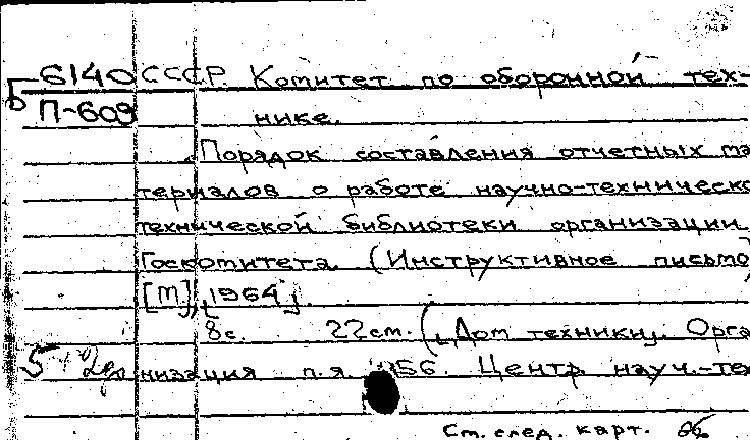 Б6140 СССР. Комитет по оборонной тех-
П-609 нике.
Порядок составления отчетных ма
териалов о работе научно-техническо
технической библиотеки организации
Госкомитета (Инструктивное письмо)
[М], [1964].
8с. 22см. („Дом техники". Орга
5 низация п.я. 156. Центр. науч.-тех
См. след. карт.